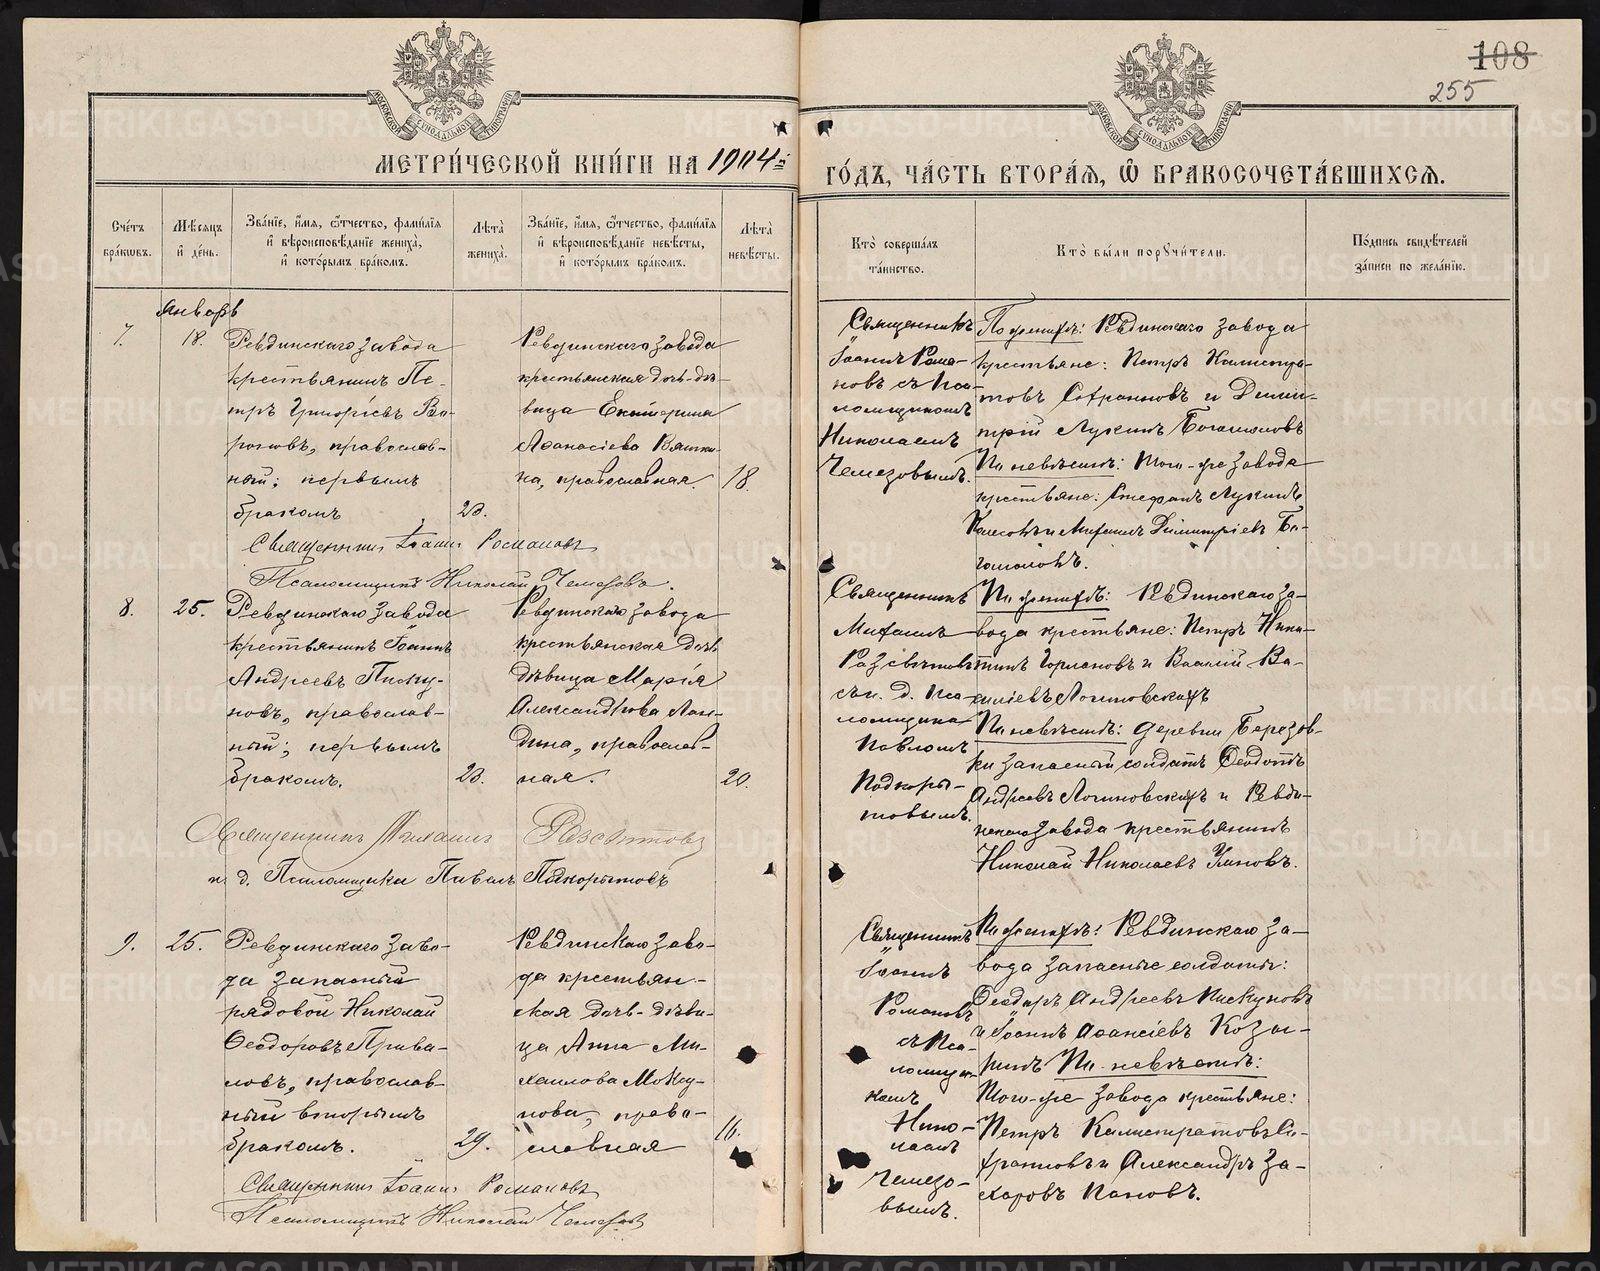 108
255
МОСКОВСКОЙ СУНОДАЛЬНОЙ ТИПОГРАФІИ
МОСКОВСКОЙ СУНОДАЛЬНОЙ ТИПОГРАФІИ
МЕТРИ́ЧЕСКОЙ КНИ́ГИ НА 1904й
ГО́ДЪ, ЧА́СТЬ ВТОРА́Ѧ, Ѽ БРАКОСОЧЕТА́ВШИХСѦ.
Сче́тъ бра́кѡвъ.
Мѣ́сяцъ и҆ де́нь.
Зва́нїе, и҆́мѧ, ѻ҆́тчество, фами́лїѧ и҆ вѣроисповѣ́данїе жениха̀, и҆ кото́рымъ бра́комъ.
Лѣ́та жениха̀.
Зва́нїе, и҆́мѧ, ѻ҆́тчество, фами́лїѧ и҆ вѣроисповѣ́данїе невѣ́сты, и҆ кото́рымъ бра́комъ.
Лѣ́та невѣ́сты.
Кто̀ соверша́лъ та́инство.
Кто̀ бы́ли порꙋчи́тели.
По́дпись свидѣ́телей за́писи по жела́нїю.
Январь
7.
18.
Ревдинскаго завода
крестьянинъ Пе-
тръ Григоріевъ
православ-
ный; первымъ
бракомъ
23.
Ревдинскаго завода
крестьянская дочь-дѣ-
вица Екатерина
Аѳанасіева Вяткин-
на, православная.
18.
Священникъ
Іоаннъ Рома-
новъ съ Пса-
ломщикомъ
Николаемъ
Чемезовымъ.
По женихѣ: Ревдинскаго завода
крестьяне: Петръ Калистра-
товъ Сафроновъ и Дими-
трій Лукинъ Богатыловъ
По невѣстѣ: того-же завода
крестьяне: Стефанъ Лукинъ
и Михаилъ Димитріевъ
Священникъ Іоаннъ Романовъ
Псаломщикъ Николай Чемезовъ.
8.
25.
Ревдинскаго завода
крестьянинъ Іоаннъ
Андреевъ Писку-
новъ, православ-
ный; первымъ
бракомъ.
23.
Ревдинскаго завода
крестьянская дочь
дѣвица Марія
Александрова
православ-
ная.
20.
Священникъ
Михаилъ
Разсвѣтовъ
съ и. д. Пса-
ломщика
Павломъ
Подкоры-
товымъ.
По женихѣ: Ревдинскаго за-
вода крестьяне: Петръ Ники-
тинъ Горлановъ и Василій Ва-
силіевъ Логиновскихъ
По невѣстѣ: деревни Березов-
ки запасный солдатъ Ѳеодотъ
Андреевъ Логиновскихъ и Ревди-
нскаго завода крестьянинъ
Николай Николаевъ Умновъ.
Священникъ Михаилъ Разсвѣтовъ
и. д. Псаломщика Павелъ Подкорытовъ
9.
25.
Ревдинскаго заво-
да запасный
рядовой Николай
Ѳеодоровъ Прива-
ловъ, православ-
ный вторымъ
бракомъ.
29.
Ревдинскаго заво-
да крестьян-
ская дочь-дѣви-
ца Анна Ми-
хаилова Моксу-
нова, право-
славная
16.
Священникъ
Іоаннъ
Романовъ
съ Пса-
ломщи-
комъ
Нико-
лаемъ
Чемезо-
вымъ.
По женихѣ: Ревдинскаго за-
вода запасные солдаты:
Ѳеодоръ Андреевъ Пискуновъ
и Іоаннъ Аѳанасіевъ Козы-
ринъ По невѣстѣ:
Того-же завода крестьяне:
Петръ Калистратовъ Са-
фроновъ и Александръ За-
харовъ Пановъ.
Священникъ Іоаннъ Романовъ
Псаломщикъ Николай Чемезовъ
METRIKI.GASO-URAL.RU